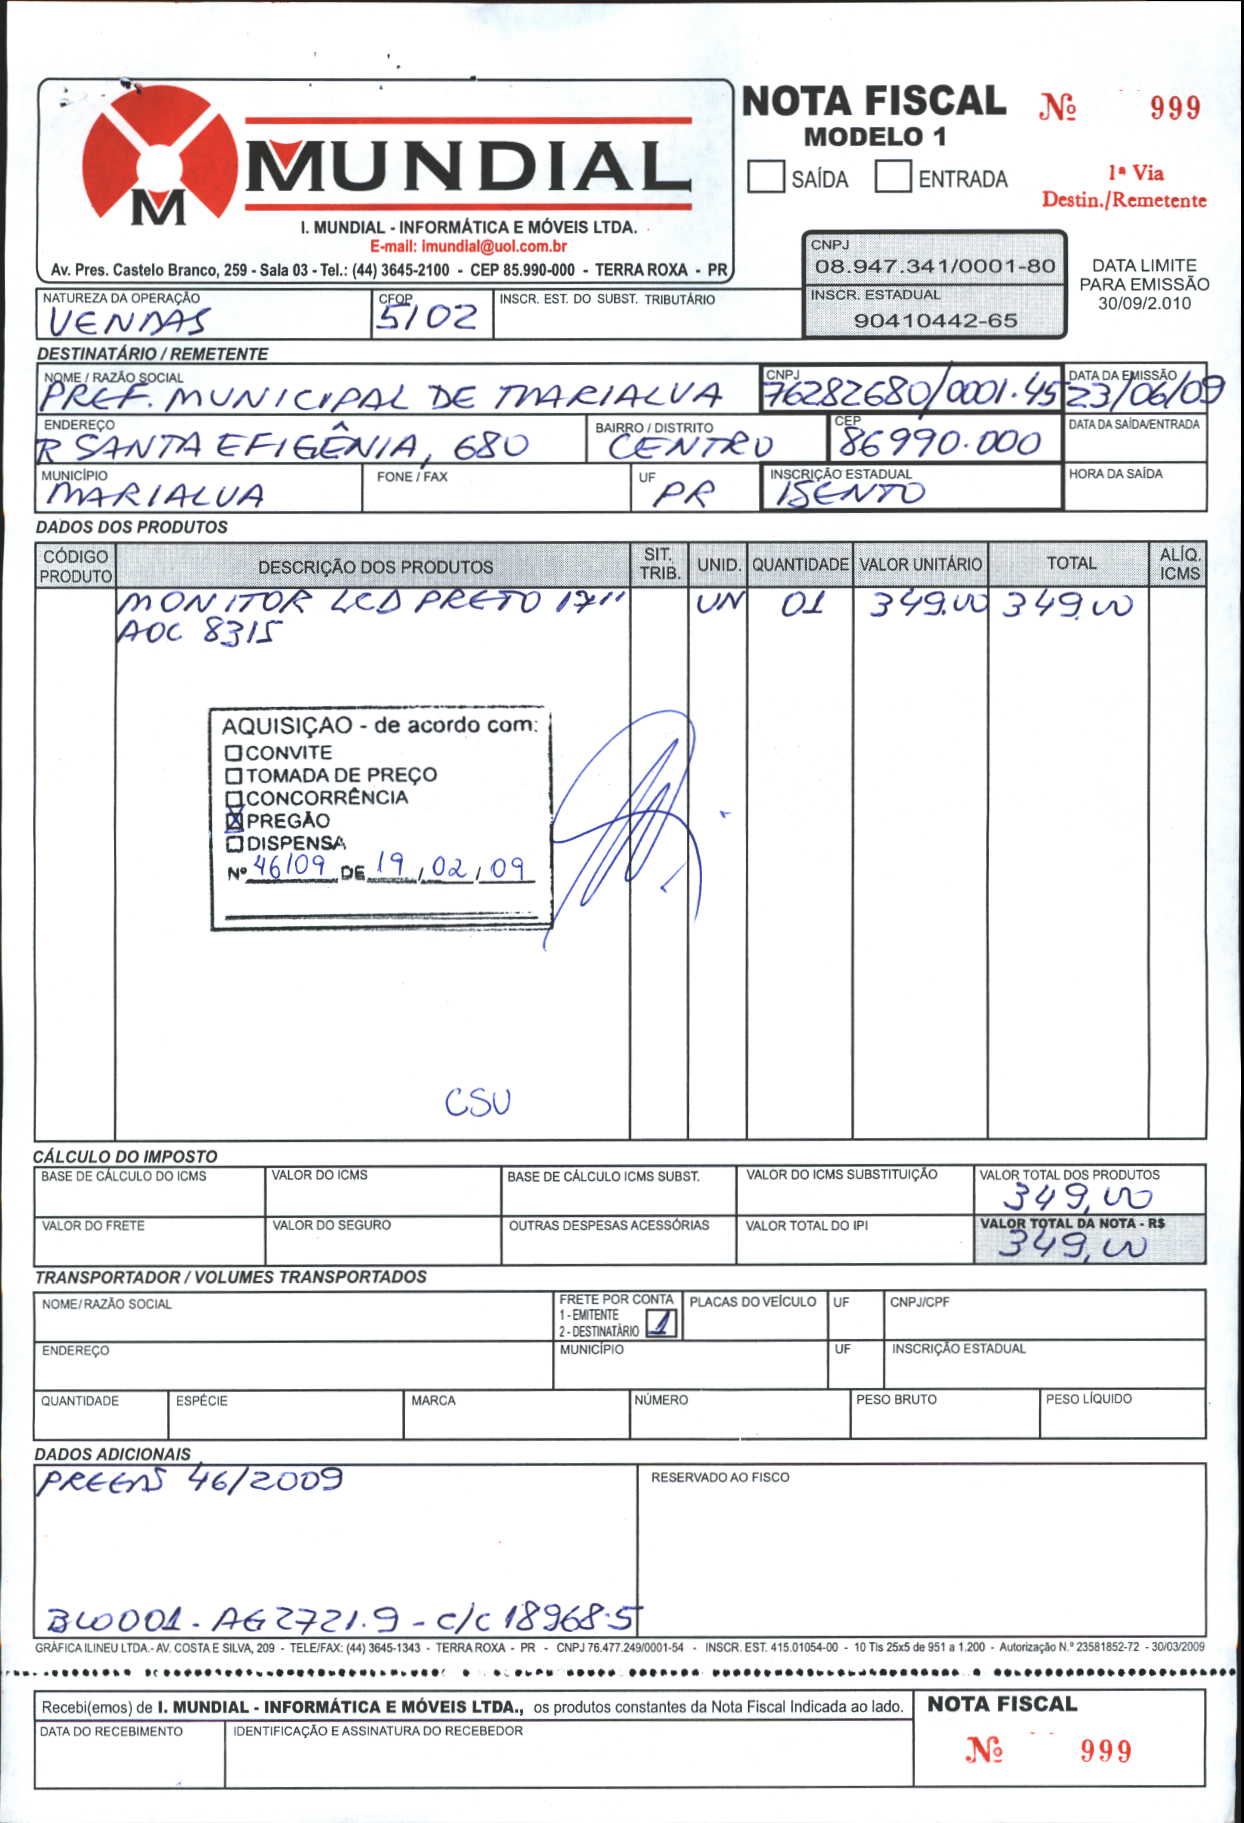 MUNDIAL
M
I. MUNDIAL - INFORMÁTICA E MÓVEIS LTDA.
E-mail: imundial@uol.com.br
Av. Pres. Castelo Branco, 259 - Sala 03 - Tel.: (44) 3645-2100 - CEP 85.990-000 - TERRA ROXA - PR
NOTA FISCAL Nº 999
MODELO 1
SAÍDA ENTRADA
1ª Via
Destin./Remetente
CNPJ
08.947.341/0001-80
INSCR. ESTADUAL
90410442-65
DATA LIMITE
PARA EMISSÃO
30/09/2.010
NATUREZA DA OPERAÇÃO CFOP INSCR. EST. DO SUBST. TRIBUTÁRIO
VENDAS 5102
DESTINATÁRIO / REMETENTE
NOME / RAZÃO SOCIAL CNPJ DATA DA EMISSÃO
PREF. MUNICIPAL DE MARIALVA 76282680/0001.45 23/06/09
ENDEREÇO BAIRRO / DISTRITO CEP DATA DA SAÍDA/ENTRADA
R SANTA EFIGÊNIA, 680 CENTRO 86990.000
MUNICÍPIO FONE / FAX UF INSCRIÇÃO ESTADUAL HORA DA SAÍDA
MARIALVA PR ISENTO
DADOS DOS PRODUTOS
CÓDIGO PRODUTO DESCRIÇÃO DOS PRODUTOS SIT. TRIB. UNID. QUANTIDADE VALOR UNITÁRIO TOTAL ALÍQ. ICMS
MONITOR LCD PRETO 17" UN 01 349.00 349.00
AOC 831S
AQUISIÇAO - de acordo com:
CONVITE
TOMADA DE PREÇO
CONCORRÊNCIA
X PREGÃO
DISPENSA
Nº 46/09 DE 19/02/09
CSU
CÁLCULO DO IMPOSTO
BASE DE CÁLCULO DO ICMS VALOR DO ICMS BASE DE CÁLCULO ICMS SUBST. VALOR DO ICMS SUBSTITUIÇÃO VALOR TOTAL DOS PRODUTOS
349,00
VALOR DO FRETE VALOR DO SEGURO OUTRAS DESPESAS ACESSÓRIAS VALOR TOTAL DO IPI VALOR TOTAL DA NOTA - R$
349,00
TRANSPORTADOR / VOLUMES TRANSPORTADOS
NOME/RAZÃO SOCIAL FRETE POR CONTA PLACAS DO VEÍCULO UF CNPJ/CPF
1 - EMITENTE
2 - DESTINATÁRIO 1
ENDEREÇO MUNICÍPIO UF INSCRIÇÃO ESTADUAL
QUANTIDADE ESPÉCIE MARCA NÚMERO PESO BRUTO PESO LÍQUIDO
DADOS ADICIONAIS
46/2009 RESERVADO AO FISCO
001 - AG 2721.9 - c/c 18968-5
GRÁFICA ILINEU LTDA.- AV. COSTA E SILVA, 209 - TELE/FAX: (44) 3645-1343 - TERRA ROXA - PR - CNPJ 76.477.249/0001-54 - INSCR. EST. 415.01054-00 - 10 Tls 25x5 de 951 a 1.200 - Autorização N.º 23581852-72 - 30/03/2009
Recebi(emos) de I. MUNDIAL - INFORMÁTICA E MÓVEIS LTDA., os produtos constantes da Nota Fiscal Indicada ao lado. NOTA FISCAL
DATA DO RECEBIMENTO IDENTIFICAÇÃO E ASSINATURA DO RECEBEDOR
Nº 999